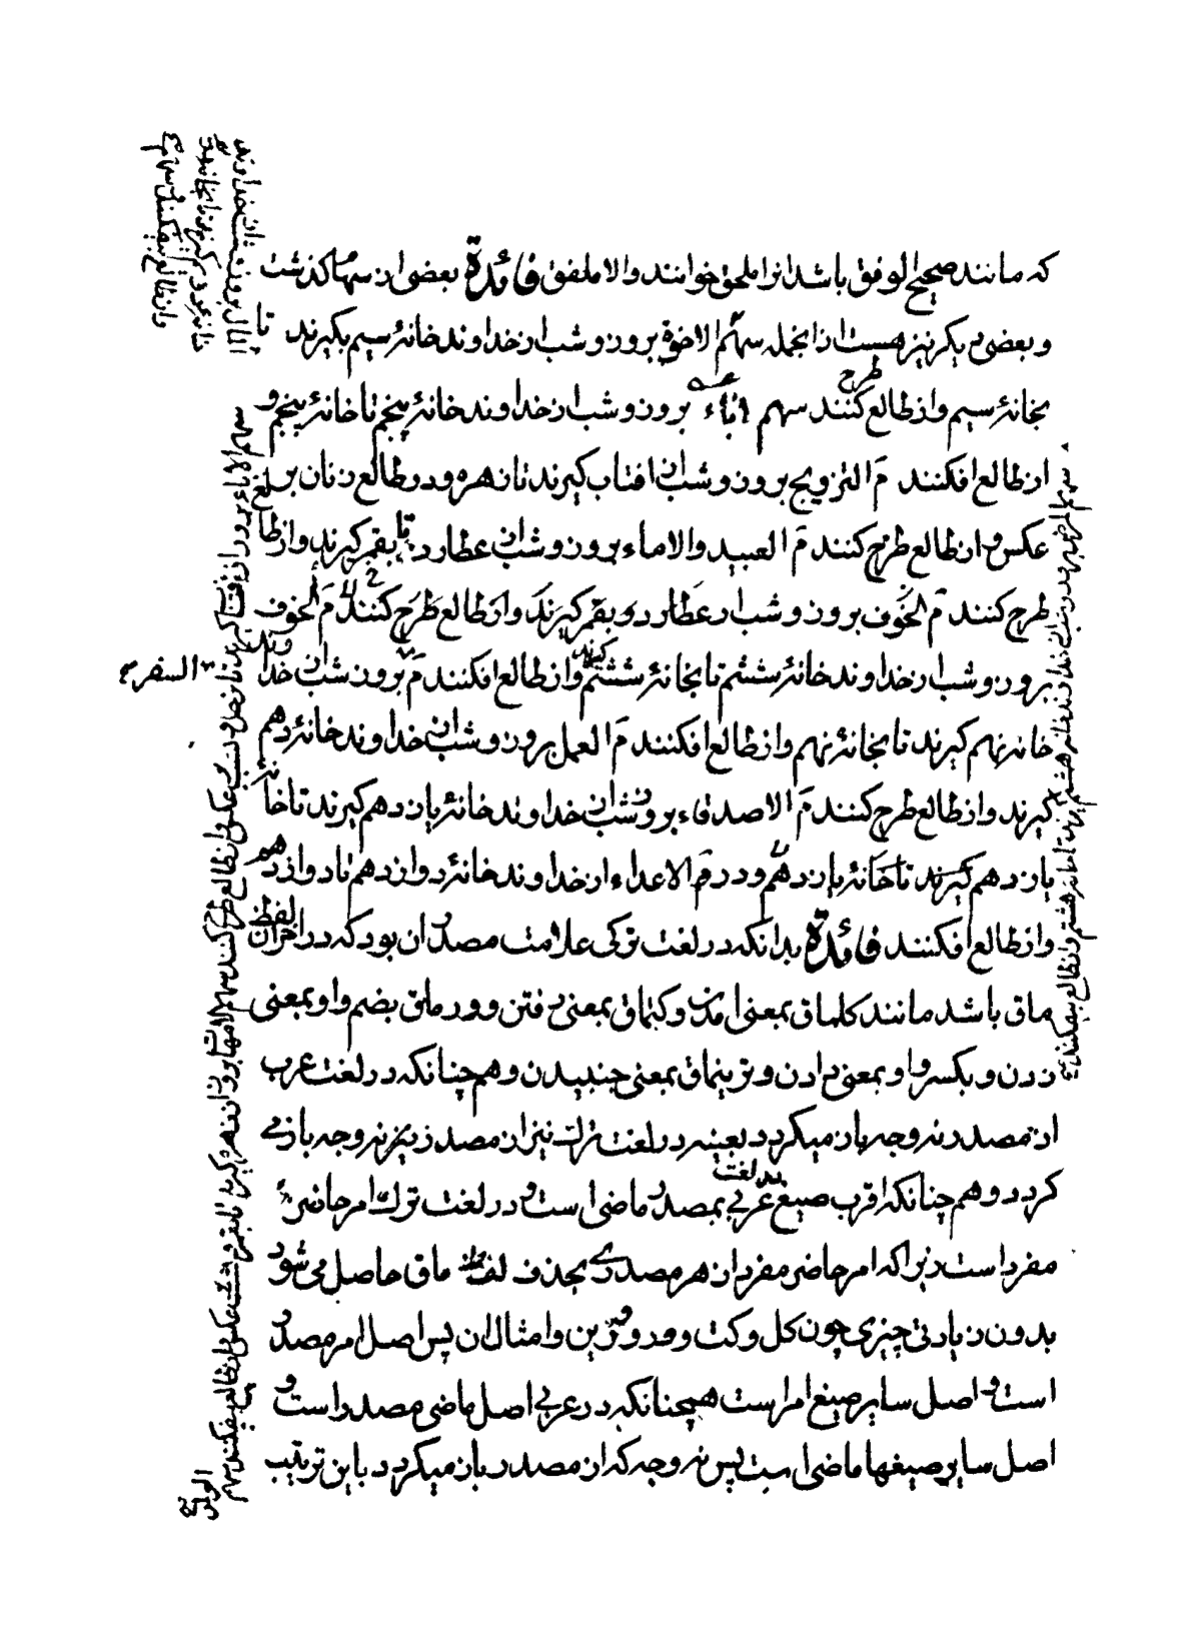 که مانند صحیح الوفق باشد انرا ملحق خوانند والا ملفق فائدة بعضی از سهمها کذشت
و بعضی دیکر نیز هست از انجمله سهم الاخوة بروز و شب از خداوند خانهٔ سیم بکیرند تا
بخانهٔ سیم و از طالع طرح کنند سهم اباء بروز و شب از خداوند خانهٔ پنجم تا خانهٔ پنجم و
از طالع افکنند م التزویج بروز و شب از افتاب کیرند تا زهره و در طالع زنان بر
عکس و از طالع طرح کنند م العبید والاماء بروز و شب از عطارد تا بقمر کیرند و از طا
طرح کنند م الخوف بروز و شب از عطارد و بقمر کیرند و از طالع طرح کنند م الخوف
بروز و شب از خداوند خانهٔ ششم تا بخانهٔ ششم کیرند و از طالع افکنند م بروز شب از خداوند
السفر
خانه نهم کیرند تا بخانهٔ نهم و از طالع افکنند م العمل بروز و شب از خداوند خانهٔ دهم
کیرند و از طالع طرح کنند م الاصدقاء بروز شب از خداوند خانهٔ یازدهم کیرند تا خانه
یازدهم کیرند تا خانهٔ یازدهم و در م الاعداء از خداوند خانهٔ دوازدهم تا دوازدهم
و از طالع افکنند فائدة بدانکه در لغت ترکی علامت مصدر ان بود که در اخر ان لفظ
ماق باشد مانند کلماق بمعنی امدن و کتماق بمعنی رفتن و ورماق بضم واو بمعنی
زدن و بکسر واو بمعنی دادن و ترپنماق بمعنی جنبیدن و هم چنانکه در لغت عرب
از مصدر نه وجه باز میکردد بعینه در لغت ترک نیز از مصدر نیز نه وجه باز می
کردد و هم چنانکه اقرب صیغ در لغت عربی بمصدر ماضی است و در لغت ترک امر حاضر
مفرد است زیرا که امر حاضر مفرد از هر مصدری بحذف لفظ ماق حاصل می شود
بدون زیادتی چیزی چون کل و کت و ور و ترپن و امثال ان پس اصل امر مصدر
است و اصل سایر صیغ امر است همچنانکه در عربی اصل ماضی مصدر است و
اصل سایر صیغها ماضی است پس نه وجه که از مصدر باز میکردد باین ترتیب
سهم الاباء بروز از افتاب کیرند تا زحل و بشب بر عکس و از طالع طرح کنند سهم الامهات بروز از زهره کیرند تا بقمر و بشب عکس و از طالع بیفکنند سهم
الولد